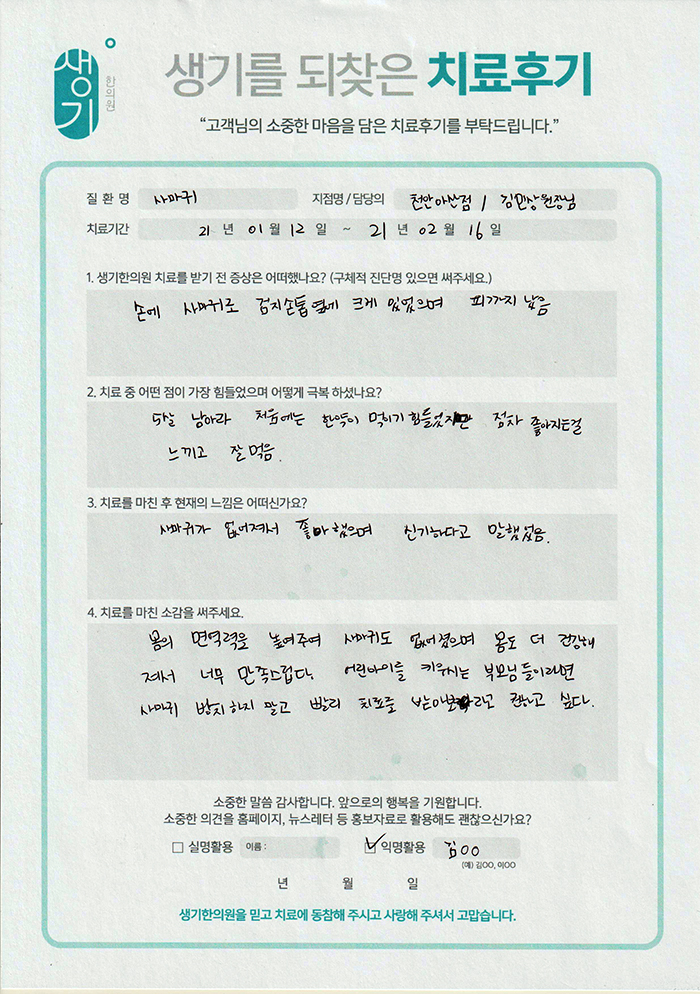 생기 한의원
생기를 되찾은 치료후기
“고객님의 소중한 마음을 담은 치료후기를 부탁드립니다.”
질 환 명 사마귀 지점명 / 담당의 천안아산점 / 김민상 원장님
치료기간 21 년 01 월 12 일 ~ 21 년 02 월 16 일
1. 생기한의원 치료를 받기 전 증상은 어떠했나요? (구체적 진단명 있으면 써주세요.)
손에 사마귀로 검지손톱 옆에 크게 있었으며 피까지 났음
2. 치료 중 어떤 점이 가장 힘들었으며 어떻게 극복 하셨나요?
5살 남아라 처음에는 한약이 먹이기 힘들었지만 점차 좋아지는걸
느끼고 잘 먹음.
3. 치료를 마친 후 현재의 느낌은 어떠신가요?
사마귀가 없어져서 좋아했으며 신기하다고 말했었음.
4. 치료를 마친 소감을 써주세요.
몸의 면역력을 높여주어 사마귀도 없어졌으며 몸도 더 건강해
져서 너무 만족스럽다. 어린아이를 키우시는 부모님들이라면
사마귀 방치하지 말고 빨리 치료를 받아보라고 권하고 싶다.
소중한 말씀 감사합니다. 앞으로의 행복을 기원합니다.
소중한 의견을 홈페이지, 뉴스레터 등 홍보자료로 활용해도 괜찮으신가요?
실명활용 이름 : 익명활용 김OO
(예) 김OO, 이OO
년 월 일
생기한의원을 믿고 치료에 동참해 주시고 사랑해 주셔서 고맙습니다.